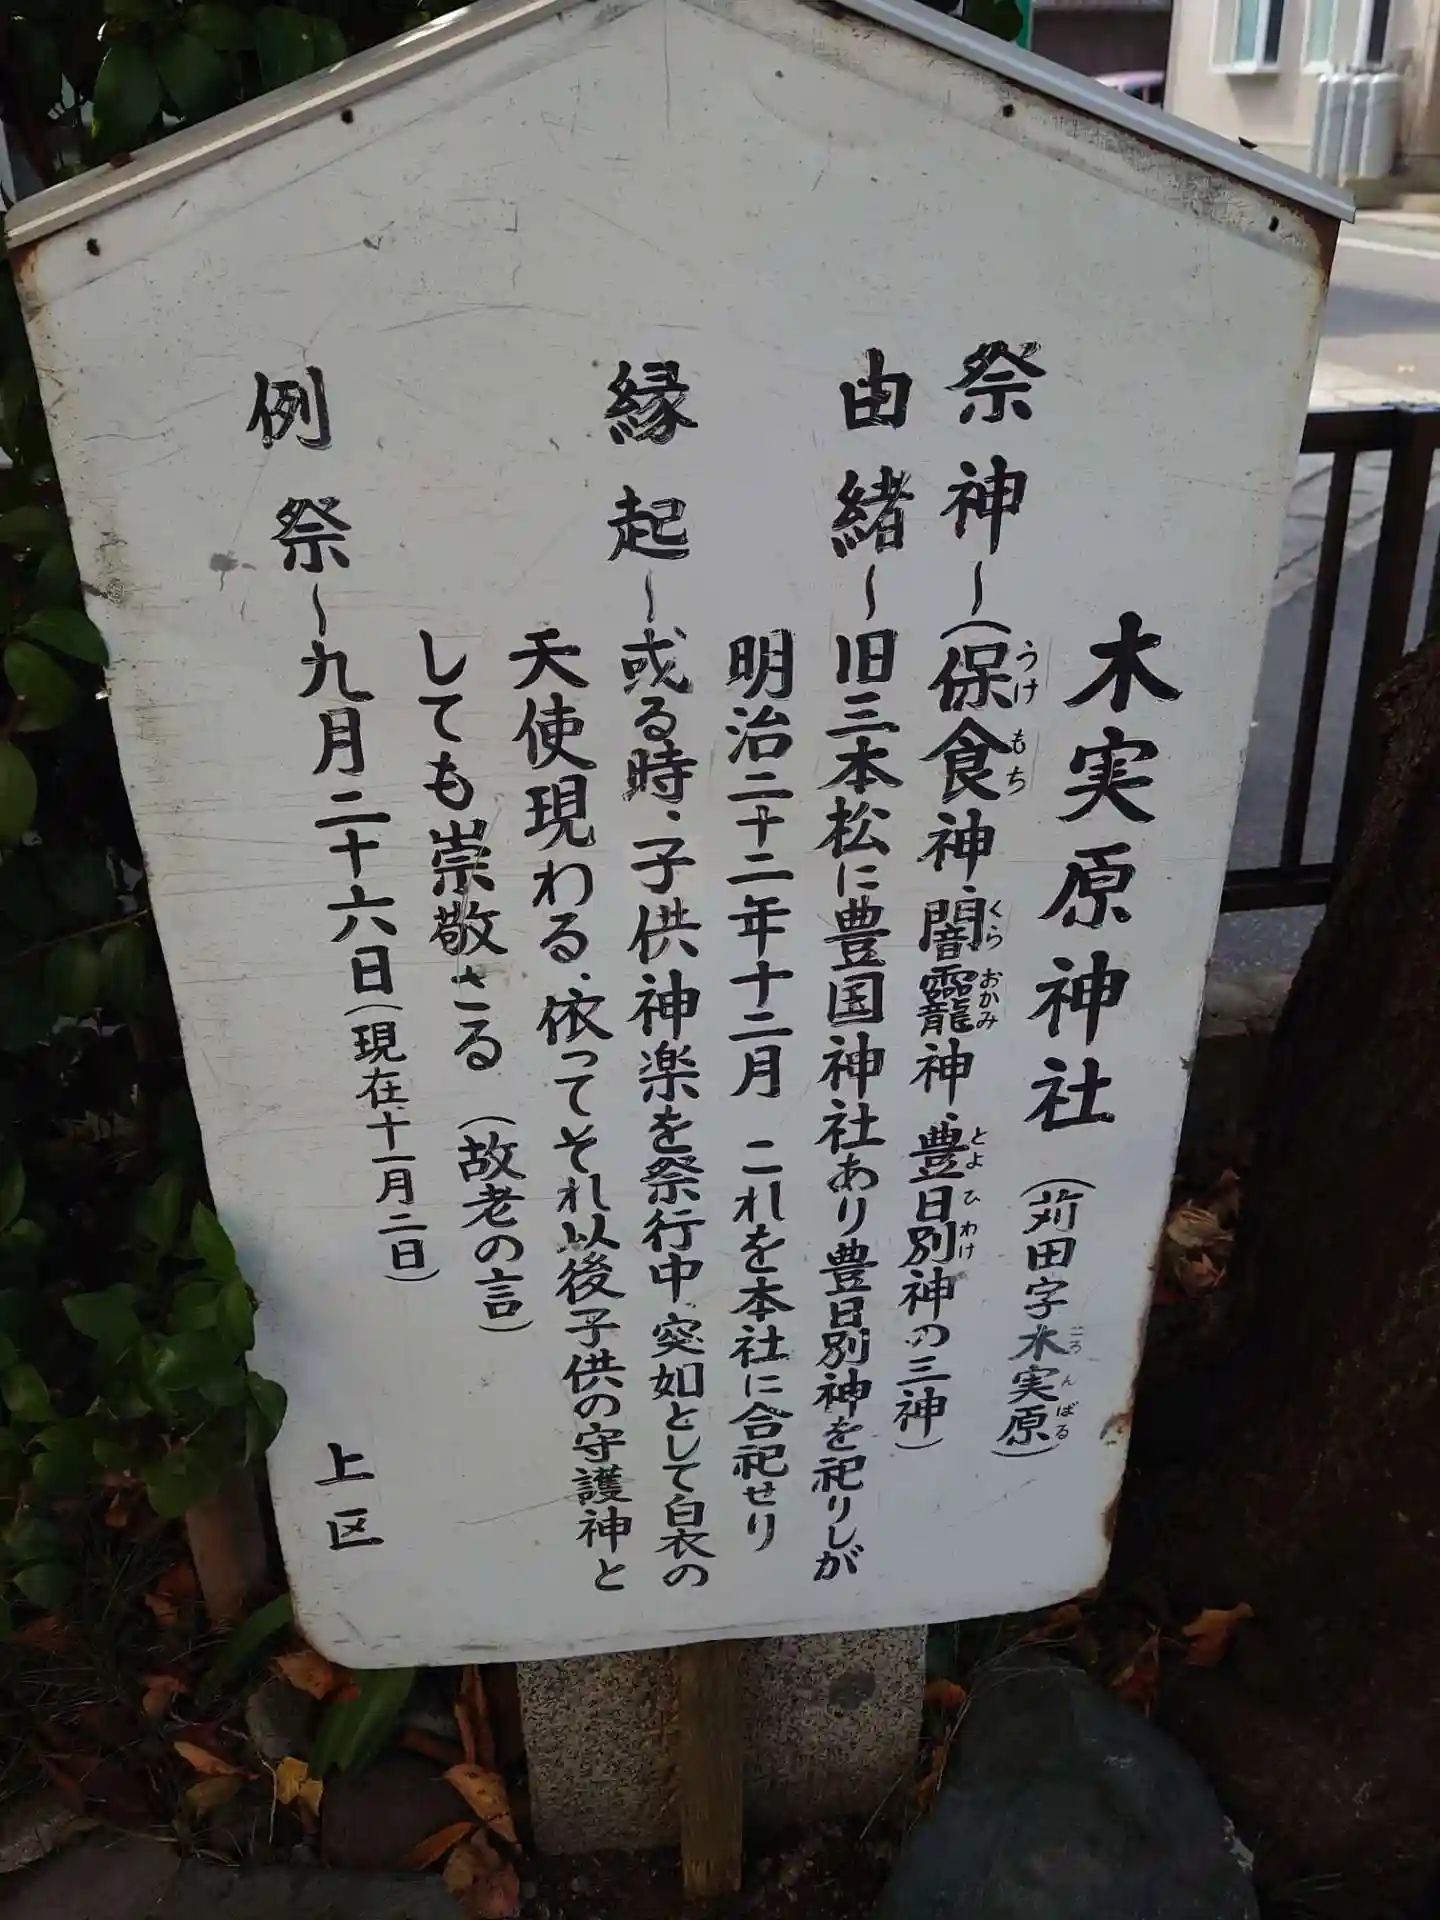 木実原神社(苅田字木実原)
祭神～(保食神、闇龗神、豊日別神の三神)
由緒～旧三本松に豊国神社あり豊日別神を祀りしが
明治二十二年十二月 これを本社に合祀せり
縁起～或る時、子供神楽を祭行中、突如として白衣の
天使現わる、依ってそれ以後子供の守護神と
しても崇敬さる (故老の言)
例祭～九月二十六日(現在、十一月二日)
上区